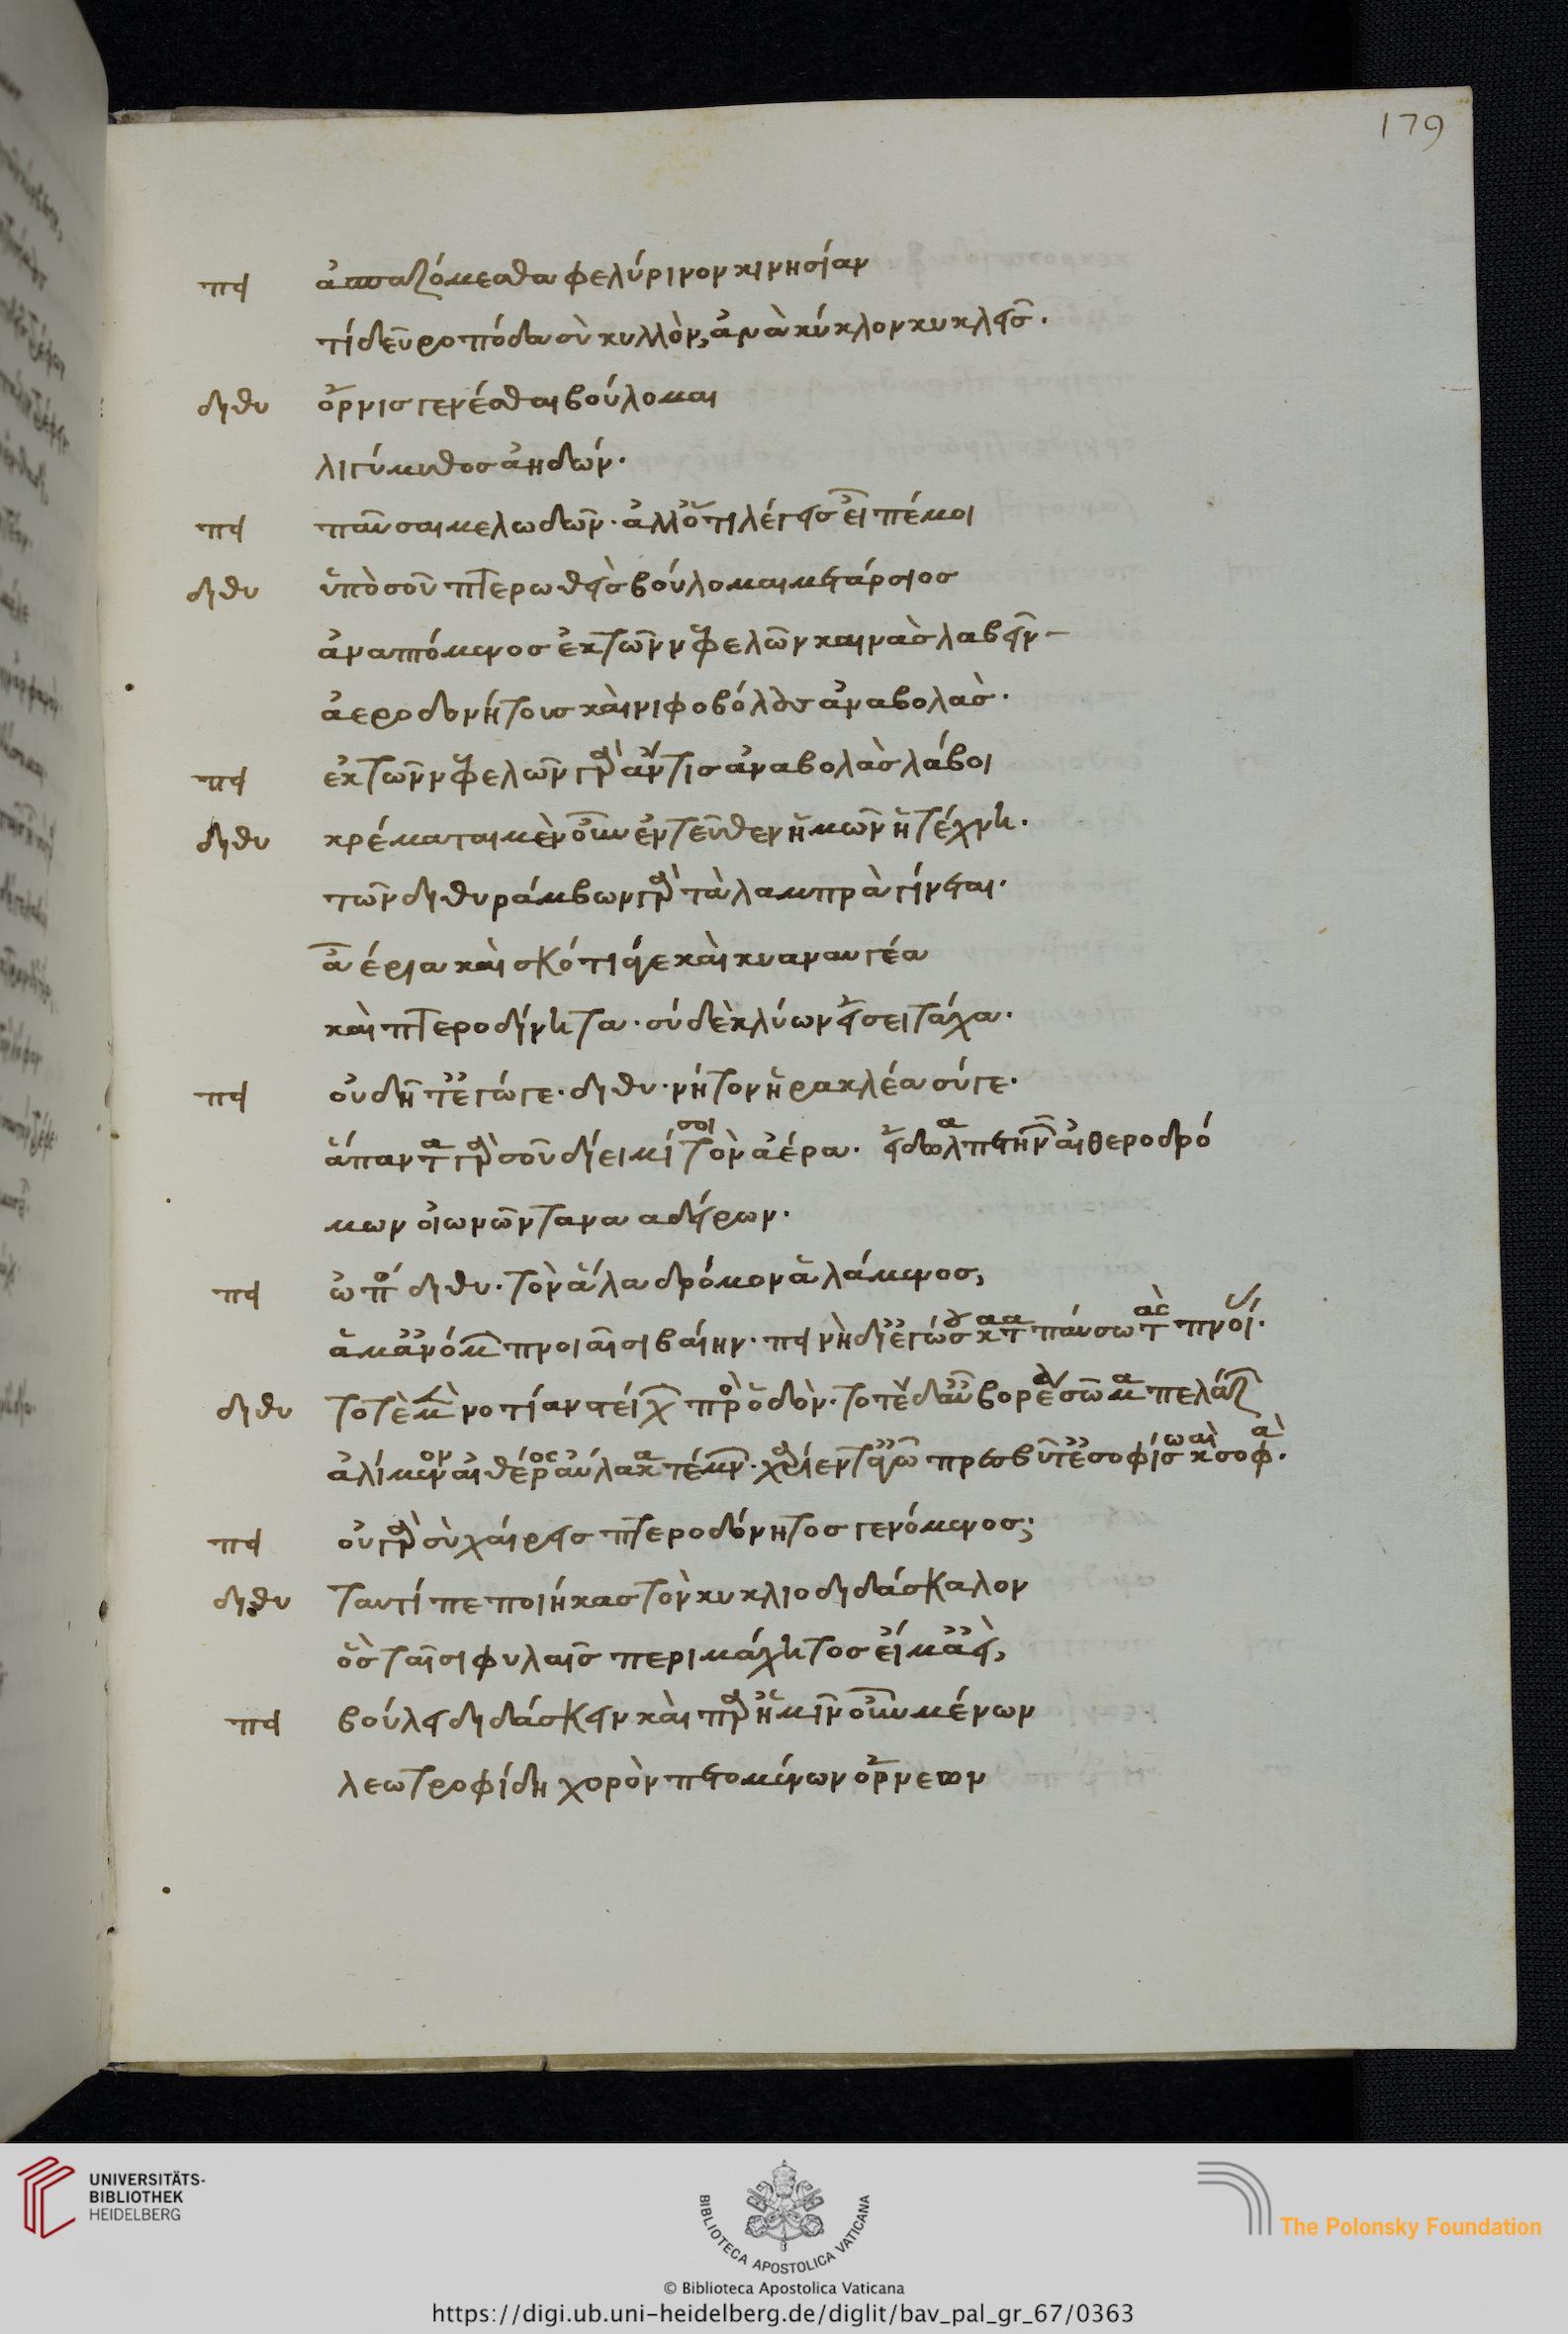 179
πει ἀσπαζόμεσθα φελύρινον κινησίαν
τί δεῦρο πόδα σὺ κυλλὸν, ἀνὰ κύκλον κυκλεῖς.
διθυ ὄρνις γενέσθαι βούλομαι
λιγύμυθος ἀηδών.
πει παῦσαι μελωδῶν. ἀλλ' ὅτι λέγεις εἰπέ μοι
διθυ ὑπὸ σοῦ πτερωθεὶς βούλομαι μετάρσιος
ἀναπόμενος ἐκ τῶν νεφελῶν καινὰς λαβεῖν
ἀεροδονήτους καὶ νιφοβόλους ἀναβολὰς.
πει ἐκ τῶν νεφελῶν γὰρ ἄν τις ἀναβολὰς λάβοι
διθυ κρέμαται μὲν οὖν ἐντεῦθεν ἡμῶν ἡ τέχνη.
τῶν διθυράμβων γὰρ τὰ λαμπρὰ γίνεται.
ἀέρια καὶ σκότιά γε καὶ κυαναυγέα
καὶ πτεροδίνητα. σὺ δὲ κλύων εἴσει τάχα.
πει οὐ δῆτ' ἔγωγε. διθυ. νὴ τὸν ἡρακλέα σύγε.
ἅπαντα γὰρ σοῦ δίειμί σοι τὸν ἀέρα. εἴδωλα πετηνῶν αἰθεροδρό
μων οἰωνῶν ταναοδείρων.
πει ὠόπ διθυ. τὸν ἁλαδρόμον ἁλάμενος,
ἅμ' ἀνέμων πνοιαῖσι βαίην. πει νὴ δί' ἐγώ σου καταπαύσω τὰς πνοάς.
διθυ τοτὲ μὲν νοτίαν στείχων πρὸς ὁδὸν. τοτὲ δ' αὖ βορέᾳ σῶμα πελάζων
ἀλίμενον αἰθέρος αὔλακα τέμνων. χαρίεντά γ' ὦ πρεσβῦτ' ἐσοφίσω καὶ σοφά.
πει οὐ γὰρ σὺ χαίρεις πτεροδόνητος γενόμενος;
διθυ ταυτὶ πεποίηκας τὸν κυκλιοδιδάσκαλον
ὃς ταῖσι φυλαῖς περιμάχητος εἴμ' ἀεὶ,
πει βούλει διδάσκειν καὶ παρ' ἡμῖν οὖν μένων
λεωτροφίδη χορὸν πετομένων ὄρνεων
UNIVERSITÄTS-
BIBLIOTHEK
HEIDELBERG
BIBLIOTECA APOSTOLICA VATICANA
The Polonsky Foundation
© Biblioteca Apostolica Vaticana
https://digi.ub.uni-heidelberg.de/diglit/bav_pal_gr_67/0363